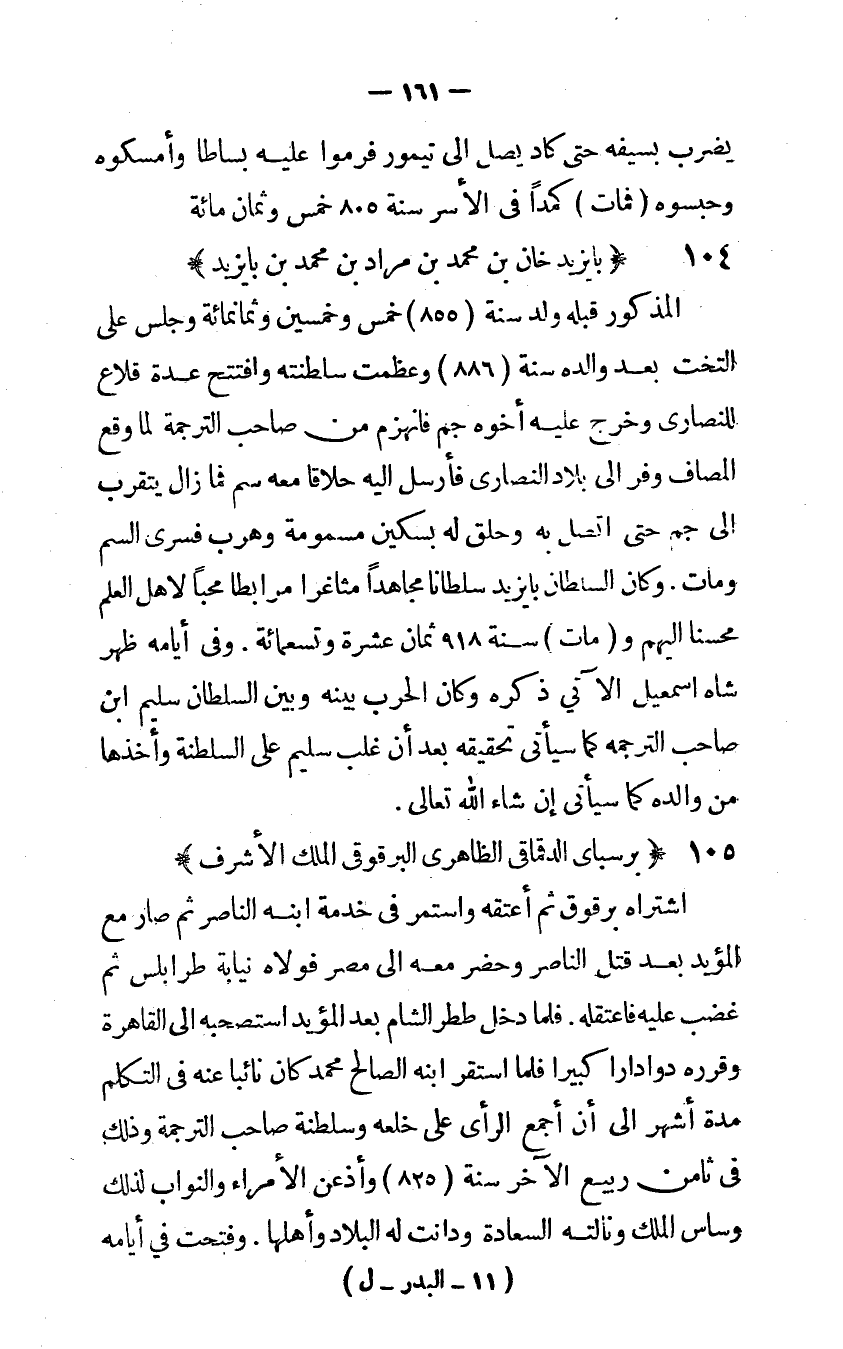 — ١٦١ —
يضرب بسيفه حتى كاد يصل الى تيمور فرموا عليه بساطا وأمسكوه
وحبسوه ( فمات ) كمداً فى الأسر سنة ٨٠٥ خمس وثمان مائة
١٠٤ ﴿ بايزيد خان بن محمد بن مراد بن محمد بن بايزيد ﴾
المذكور قبله ولد سنة ( ٨٥٥ ) خمس وخمسين وثمانمائة وجلس على
التخت بعد والده سنة ( ٨٨٦ ) وعظمت سلطنته وافتتح عدة قلاع
للنصارى وخرج عليه أخوه جم فانهزم من صاحب الترجمة لما وقع
المصاف وفر الى بلاد النصارى فأرسل اليه حلاقا معه سم فما زال يتقرب
الى جم حتى اتصل به وحلق له بسكين مسمومة وهرب فسرى السم
ومات . وكان السلطان بايزيد سلطانا مجاهداً مثاغرا مرابطا محباً لاهل العلم
محسنا اليهم و ( مات ) سنة ٩١٨ ثمان عشرة وتسعمائة . وفى أيامه ظهر
شاه اسمعيل الآتي ذكره وكان الحرب بينه وبين السلطان سليم ابن
صاحب الترجمه كما سيأتى تحقيقه بعد أن غلب سليم على السلطنة وأخذها
من والده كما سيأتى إن شاء الله تعالى .
١٠٥ ﴿ برسباى الدقماقى الظاهرى البرقوقى الملك الأشرف ﴾
اشتراه برقوق ثم أعتقه واستمر فى خدمة ابنه الناصر ثم صار مع
المؤيد بعد قتل الناصر وحضر معه الى مصر فولاه نيابة طرابلس ثم
غضب عليه فاعتقله . فلما دخل ططر الشام بعد المؤيد استصحبه الى القاهرة
وقرره دوادارا كبيرا فلما استقر ابنه الصالح محمد كان نائبا عنه فى التكلم
مدة أشهر الى أن أجمع الرأى على خلعه وسلطنة صاحب الترجمة وذلك
فى ثامن ربيع الآخر سنة ( ٨٢٥ ) وأذعن الأمراء والنواب لذلك
وساس الملك ونالته السعادة ودانت له البلاد وأهلها . وفتحت في أيامه
( ١١ - البدر - ل )